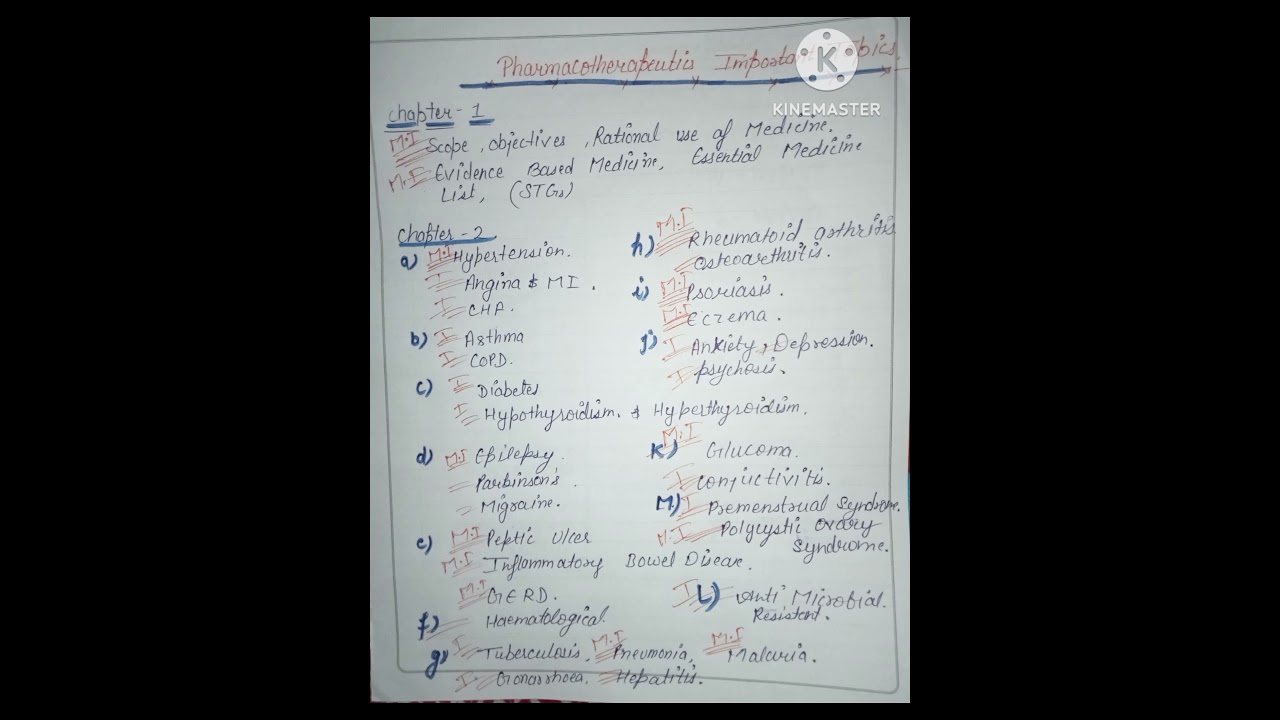 Pharmacotherapeutics Important Topics.
KINEMASTER
Chapter - 1
M.I Scope, objectives, Rational use of Medicine.
M.I Evidence Based Medicine, Essential Medicine
List, (STGs)
Chapter - 2
a) M.I Hypertension.
I Angina & MI.
I CHF.
b) I Asthma
I COPD.
c) I Diabetes
I Hypothyroidism. & Hyperthyroidism.
d) M.I Epilepsy.
Parkinson's.
Migraine.
e) M.I Peptic Ulcer
M.I Inflammatory Bowel Disease.
M.I GERD.
f) Haematological.
g) I Tuberculosis, M.I Pneumonia, M.I Malaria.
I Gonarrhoea. Hepatitis.
h) M.I Rheumatoid arthritis
Osteoarthritis.
i) M.I Psoriasis.
M.I Eczema.
j) I Anxiety, Depression.
I psychosis.
K) M.I Glucoma.
I Conjuctivitis.
M) I Premenstrual Syndrome.
M.I Polycystic Ovary
Syndrome.
I L) Anti Microbial.
Resistant.